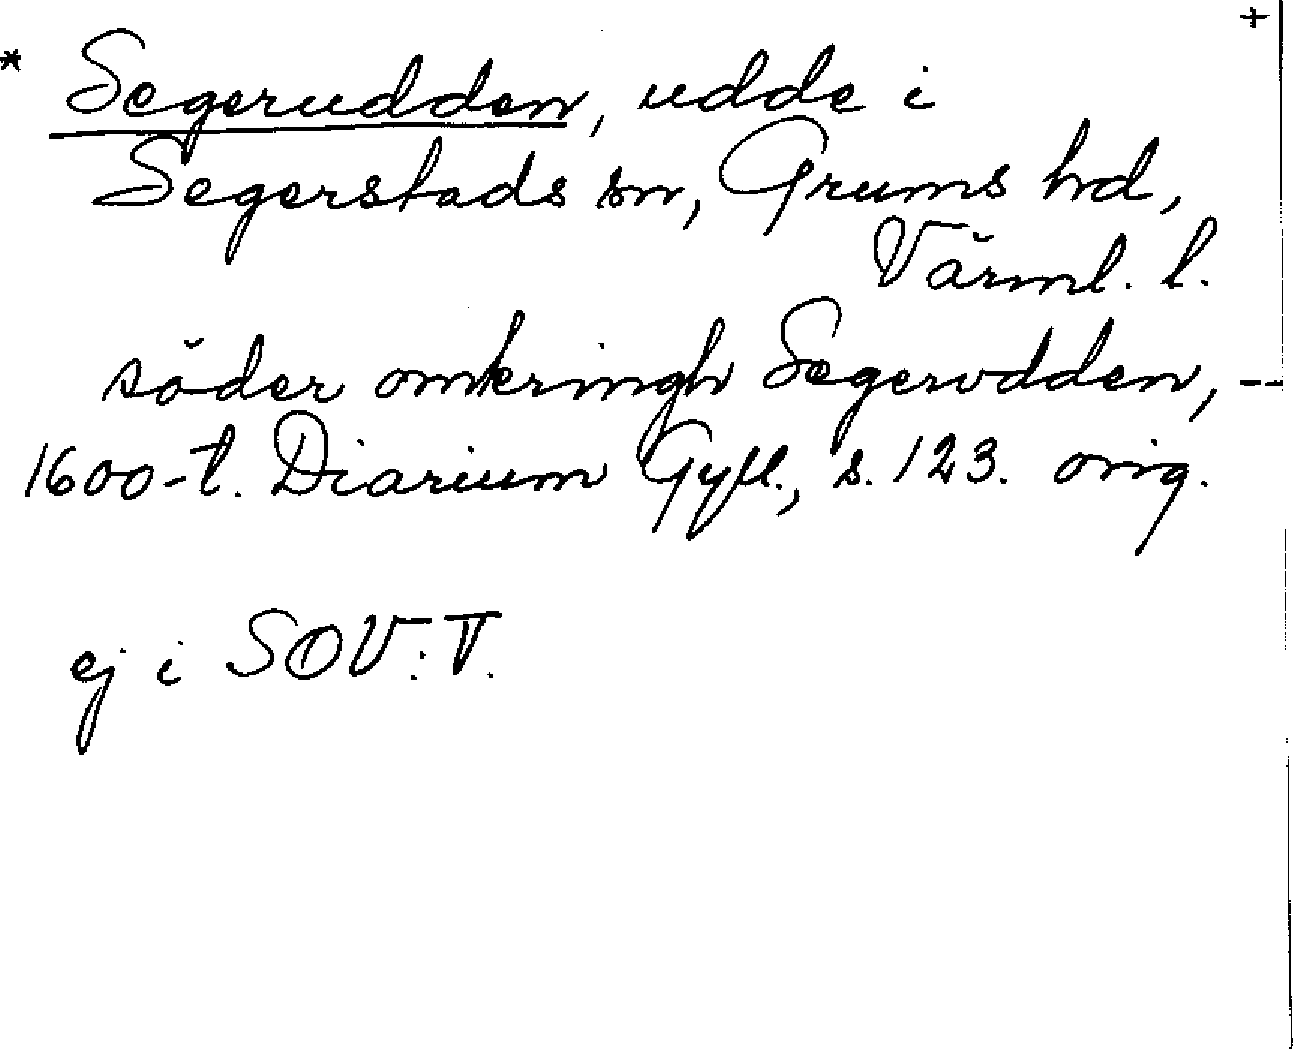 +
* Segerudden, udde i
Segerstads sn, Grums hd,
Värml. l.
söder omkringh Segervdden, --
1600-t. Diarium Gyll., s. 123. orig.
ej i SOV:T.